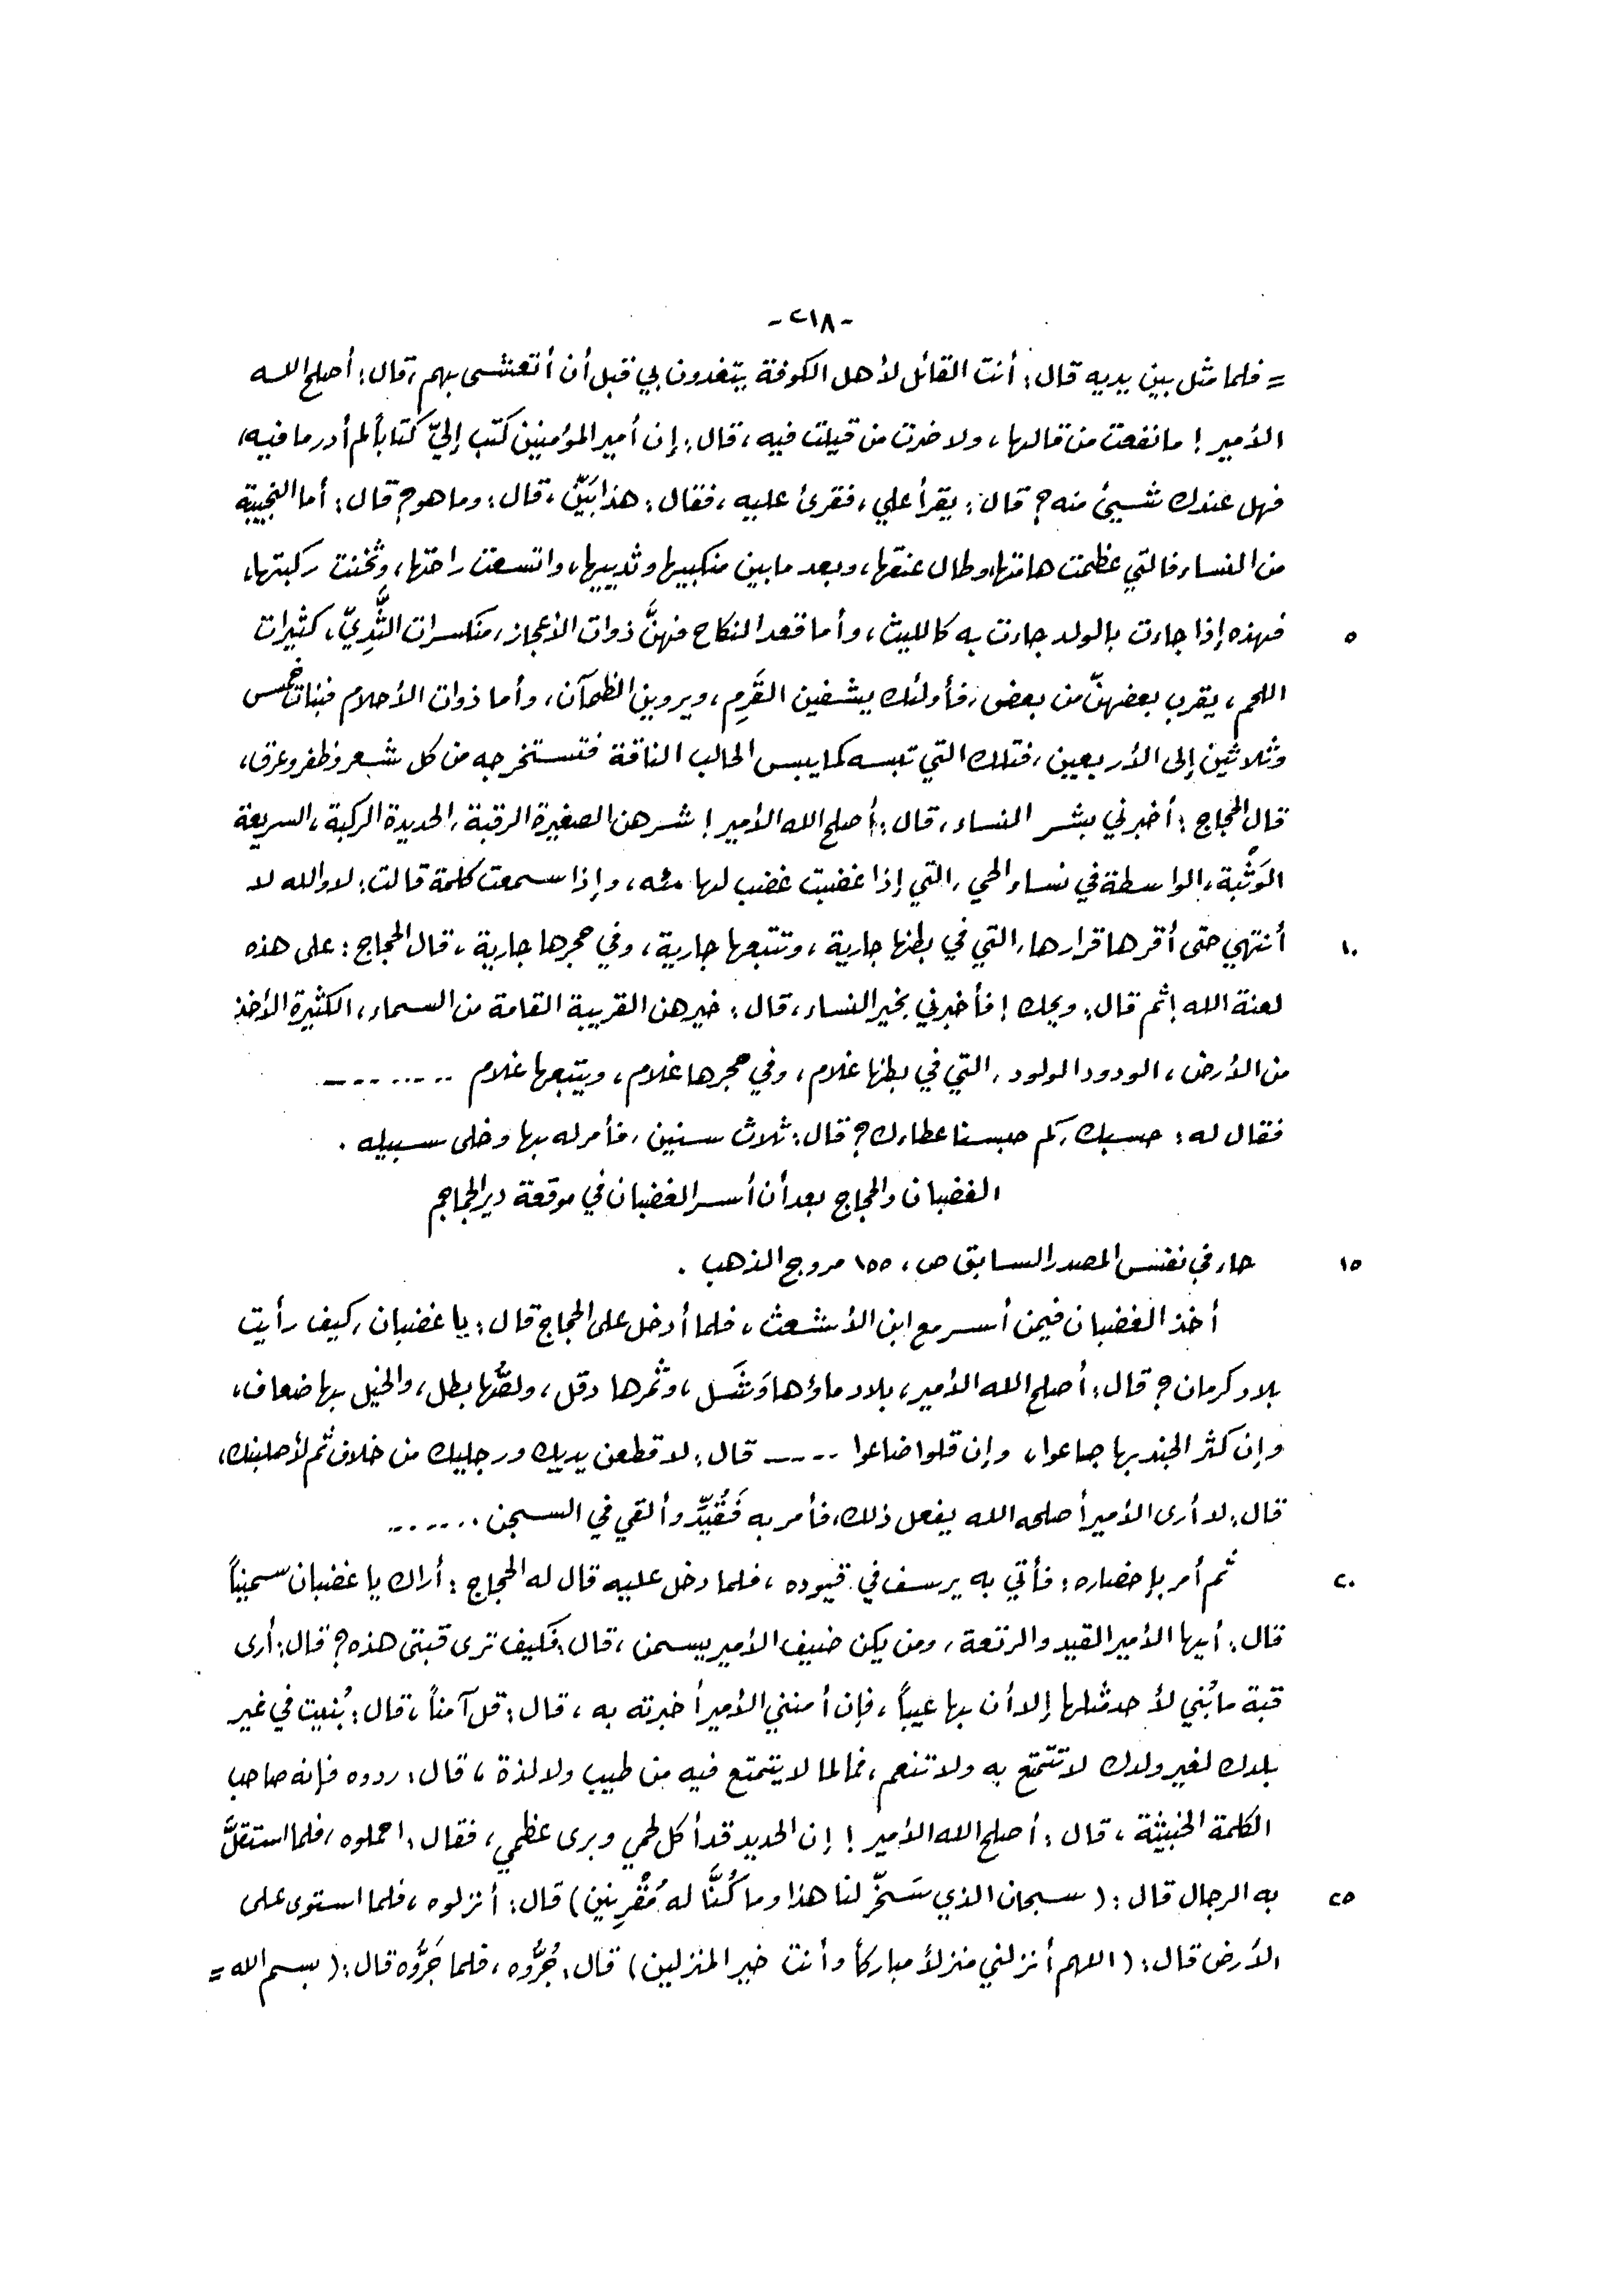 -٢١٨-
= فلما مثل بين يديه قال: أنت القائل لأهل الكوفة يتغدون بي قبل أن أتعشى بهم، قال: أصلح الله
الأمير! ما نفعت من قالها، ولا ضرت من قيلت فيه، قال: إن أمير المؤمنين كتب إليّ كتاباً لم أدر ما فيه،
فهل عندك شيئ منه؟ قال: يقرأ علي، فقرئ عليه، فقال: هذا بَيّن، قال: وما هو؟ قال: أما النجيبة
من النساء فالتي عظمت هامتها، وطال عنقها، وبعد ما بين منكبيها وثدييها، واتسعت راحتها، وثخنت ركبتها،
٥ فهذه إذا جاءت بالولد جاءت به كالليث، وأما قعد النكاح فهنَّ ذوات الأعجاز، منكسرات الثُّدِيّ، كثيرات
اللحم، يقرب بعضهنّ من بعض، فأولئك يشفين القَرِم، ويروين الظمآن، وأما ذوات الأحلام فبنات خمس
وثلاثين إلى الأربعين، فتلك التي تبسه كما يبس الحالب الناقة فتستخرجه من كل شعر وظفر وعرق،
قال الحجاج: أخبرني بشر النساء، قال: أصلح الله الأمير! شرهن الصغيرة الرقبة، الحديدة الركبة، السريعة
الوَثْبة، الواسطة في نساء الحي، التي إذا غضبت غضب لها مئه، وإذا سمعت كلمة قالت: لا والله لا
١٠ أنتهي حتى أقرها قرارها، التي في بطنها جارية، وتتبعها جارية، وفي حجرها جارية، قال الحجاج: على هذه
لعنة الله! ثم قال: ويحك! فأخبرني بخير النساء، قال: خيرهن القريبة القامة من السماء، الكثيرة الأخذ
من الأرض، الودود الولود، التي في بطنها غلام، وفي حجرها غلام، ويتبعها غلام ........
فقال له: حسبك، كم حبسنا عطاءك؟ قال: ثلاث سنين، فأمر له بها وخلى سبيله.
الغضبان والحجاج بعد أن أسر الغضبان في موقعة دير الجماجم
١٥ جاء في نفس المصدر السابق ص، ١٥٥ مروج الذهب.
أخذ الغضبان فيمن أسر مع ابن الأشعث، فلما أدخل على الحجاج قال: يا غضبان، كيف رأيت
بلاد كرمان؟ قال: أصلح الله الأمير، بلاد ماؤها وَشَل، وثمرها دقل، ولصُّها بطل، والخيل بها ضعاف،
وإن كثر الجند بها جاعوا، وإن قلوا ضاعوا ..... قال: لأقطعن يديك ورجليك من خلاف ثم لأصلبنك،
قال: لا أرى الأمير أصلحه الله يفعل ذلك، فأمر به فَقُيِّد وألقي في السجن ......
٢٠ ثم أمر بإحضاره: فأتي به يرسف في قيوده، فلما دخل عليه قال له الحجاج: أراك يا غضبان سميناً
قال: أيها الأمير القيد والرتعة، ومن يكن ضيف الأمير يسمن، قال: فكيف ترى قبتي هذه؟ قال: أرى
قبة ما بُني لأحد مثلها إلا أن بها عيباً، فإن أمنني الأمير أخبرته به، قال: قل آمناً، قال: بُنيت في غير
بلدك لغير ولدك لا تتمتع به ولا تنعم، فما لما لا يتمتع فيه من طيب ولا لذة، قال: ردوه فإنه صاحب
الكلمة الخبيثة، قال: أصلح الله الأمير! إن الحديد قد أكل لحمي وبرى عظمي، فقال: احملوه، فلما استقلَّ
٢٥ به الرجال قال: (سبحان الذي سَخّر لنا هذا وما كُنَّا له مُقْرِنين) قال: أنزلوه، فلما استوى على
الأرض قال: (اللهم أنزلني منزلاً مباركاً وأنت خير المنزلين) قال: جُرُّوه، فلما جَرُّوه قال: (بسم الله =